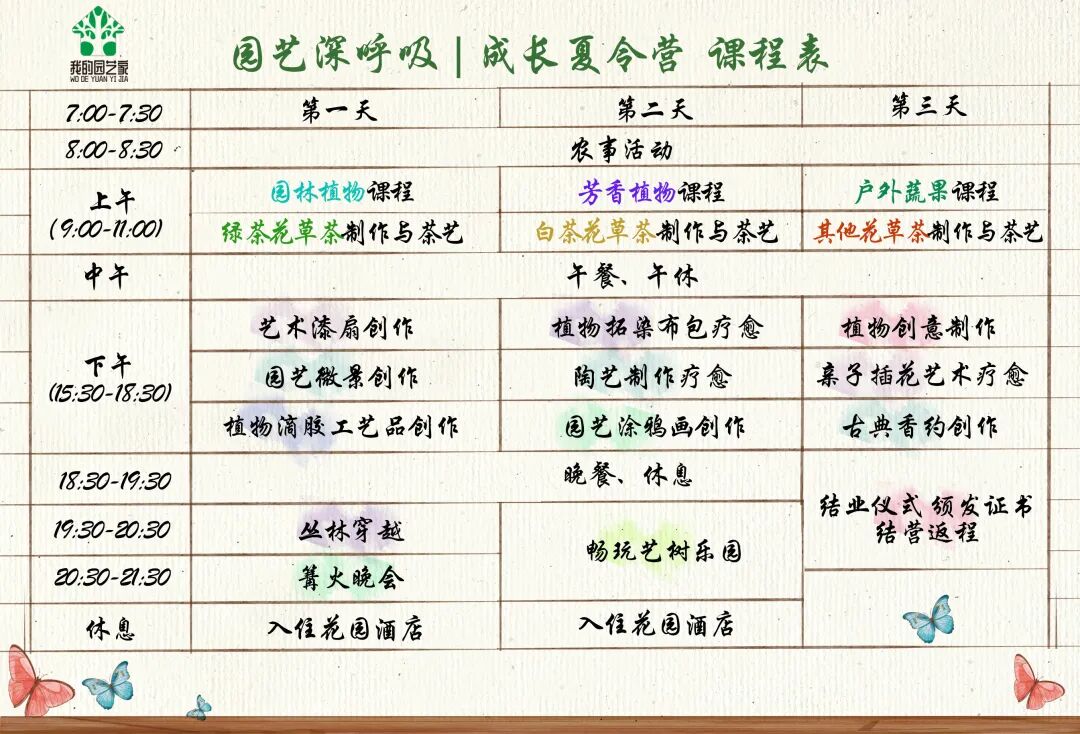 我的园艺家
WO DE YUAN YI JIA
园艺深呼吸 | 成长夏令营 课程表
7:00-7:30 第一天 第二天 第三天
8:00-8:30 农事活动
上午
(9:00-11:00)
园林植物课程 芳香植物课程 户外蔬果课程
绿茶花草茶制作与茶艺 白茶花草茶制作与茶艺 其他花草茶制作与茶艺
中午 午餐、午休
下午
(15:30-18:30)
艺术漆扇创作 植物拓染布包疗愈 植物创意制作
园艺微景创作 陶艺制作疗愈 亲子插花艺术疗愈
植物滴胶工艺品创作 园艺涂鸦画创作 古典香约创作
18:30-19:30 晚餐、休息
结业仪式 颁发证书
结营返程
19:30-20:30 丛林穿越 畅玩艺树乐园
20:30-21:30 篝火晚会
休息 入住花园酒店 入住花园酒店